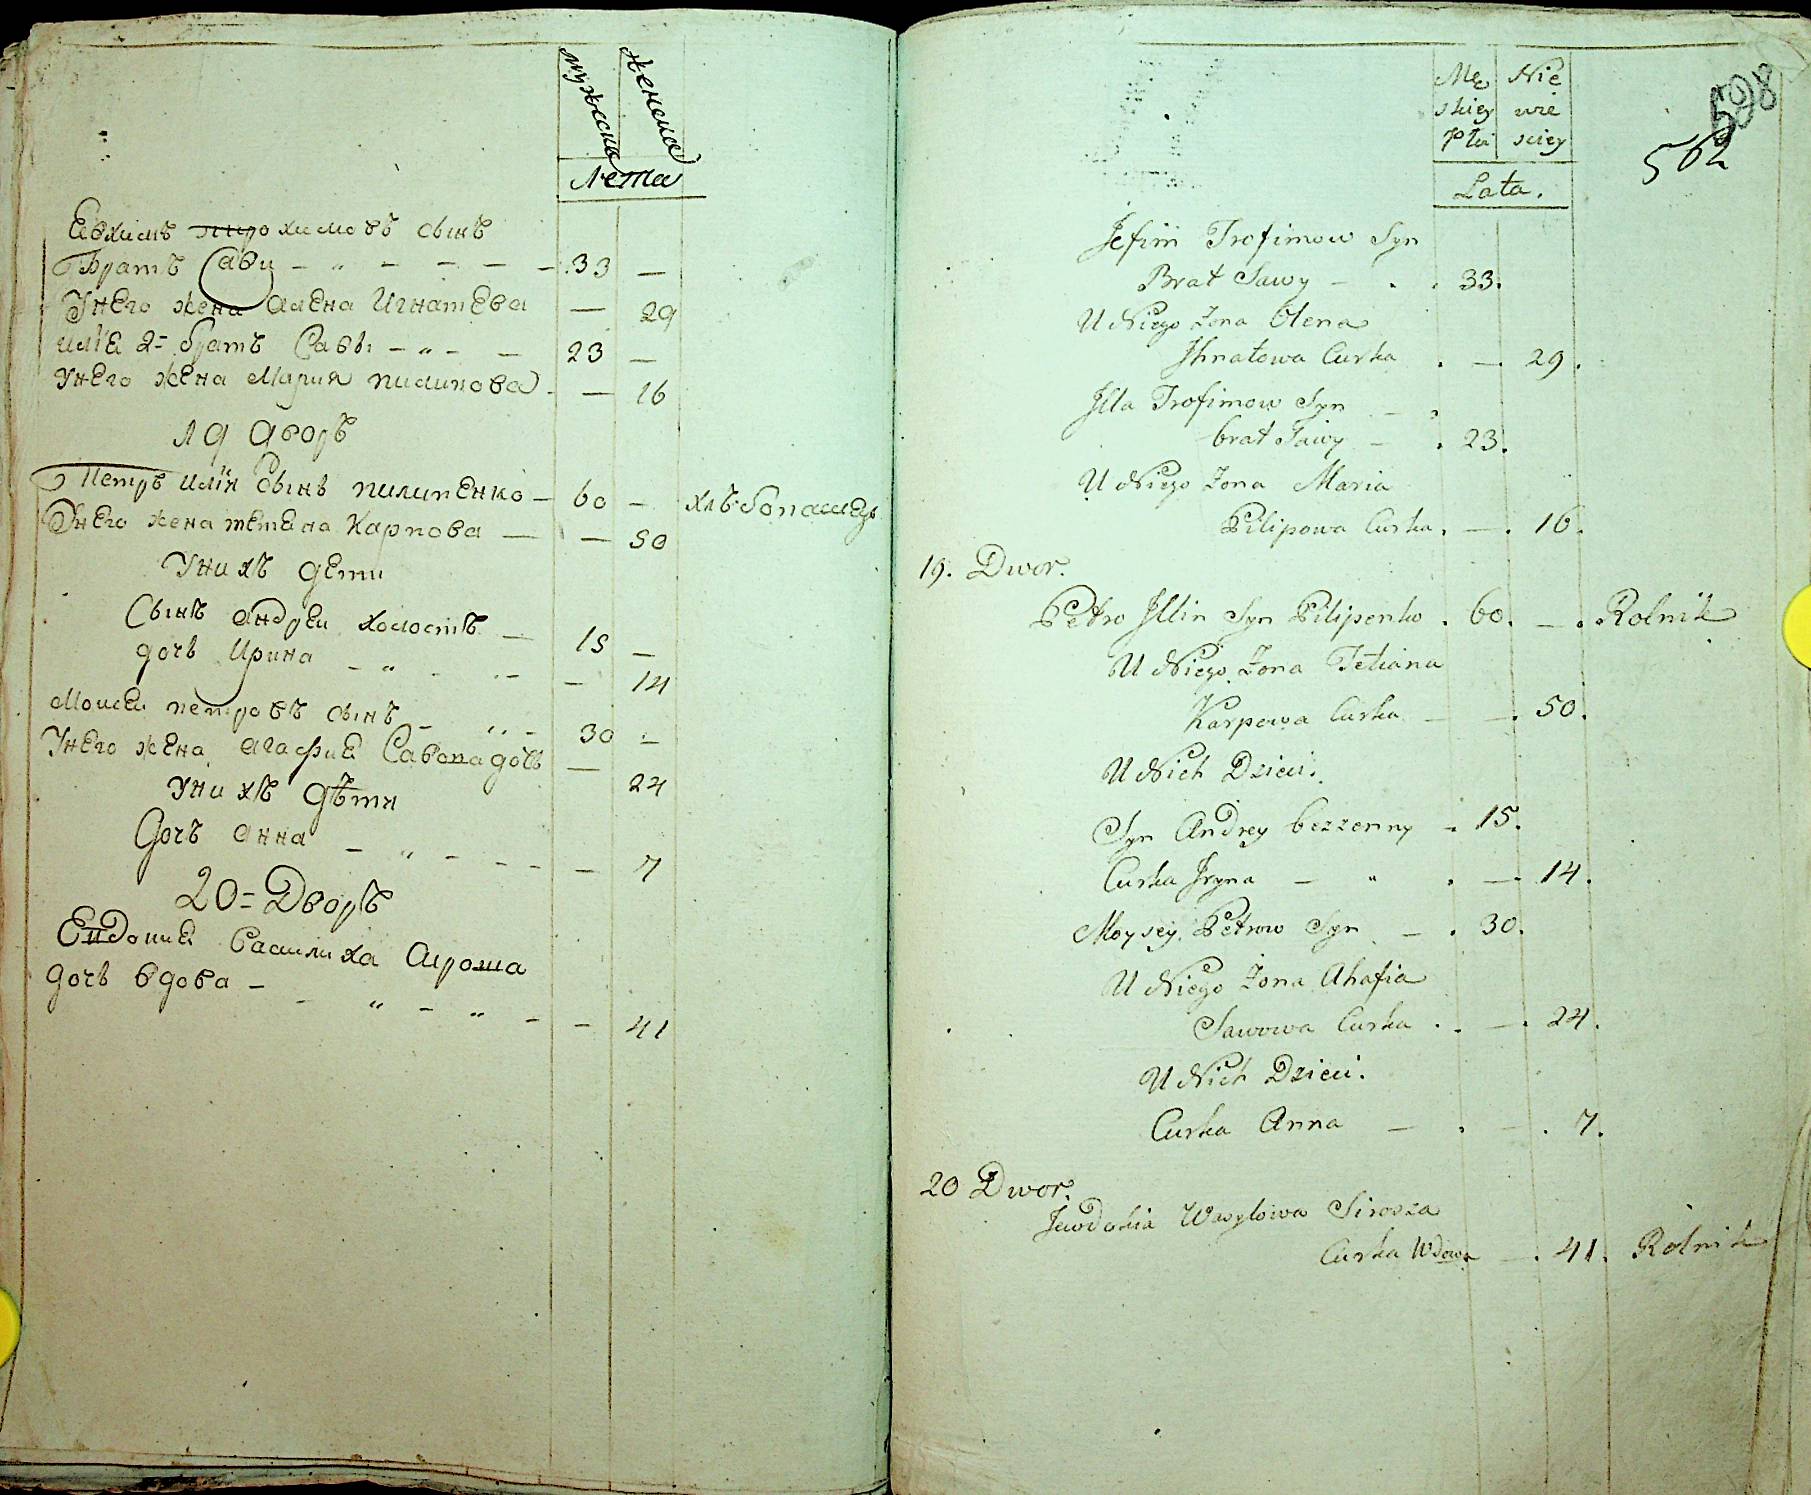 мужеска женска
лета
Евхимъ трохимовъ сынъ
братъ Сави — 33 —
Унего жена Алена Игнатева — 29
илїя 2= братъ Савы — 23 —
Унего жена Мария пилипова — 16
19 дворъ
Петръ илїи сынъ пилипенко — 60 — хлѣбопашецъ
Унего жена тетяна Карпова — 50
Унихъ дети
Сынъ андреи холостъ — 15 —
дочь Ирина — „ — 14
Моисеи петровъ сынъ — „ — 30 —
Унего жена агафия Савопа дочь — 24
Унихъ дѣти
Дочъ анна — „ — 7
20= Дворъ
Евдокия Василиха Сироша
дочь вдова — „ — „ — 41
Mę Nie
skiey wie
Płci sciey
Lata.
598
562
Jefim Trofimow Syn
Brat Sawy — 33.
U Niego Zona Olena
Jhnatowa Curka . — . 29.
Jlla Trofimow Syn —
brat Sawy — . 23.
U Niego Zona Maria
Pilipowa Curka . — . 16.
19. Dwor.
Petro Jllin Syn Pilipenko . 60. — . Rolnik
U Niego Zona Tetiana
Karpowa Curka — . 50.
U Nich Dzieci.
Syn Andrey bezzenny . 15.
Curka Jryna — „ . — . 14.
Moysey Petrow Syn — . 30.
U Niego Zona Ahafia
Sawowa Curka . . — . 24.
U Nich Dzieci.
Curka Anna — . — . 7.
20 Dwor.
Jewdokia Wasylowa Sirosza
Curka Wdowa — . 41. Rolnik